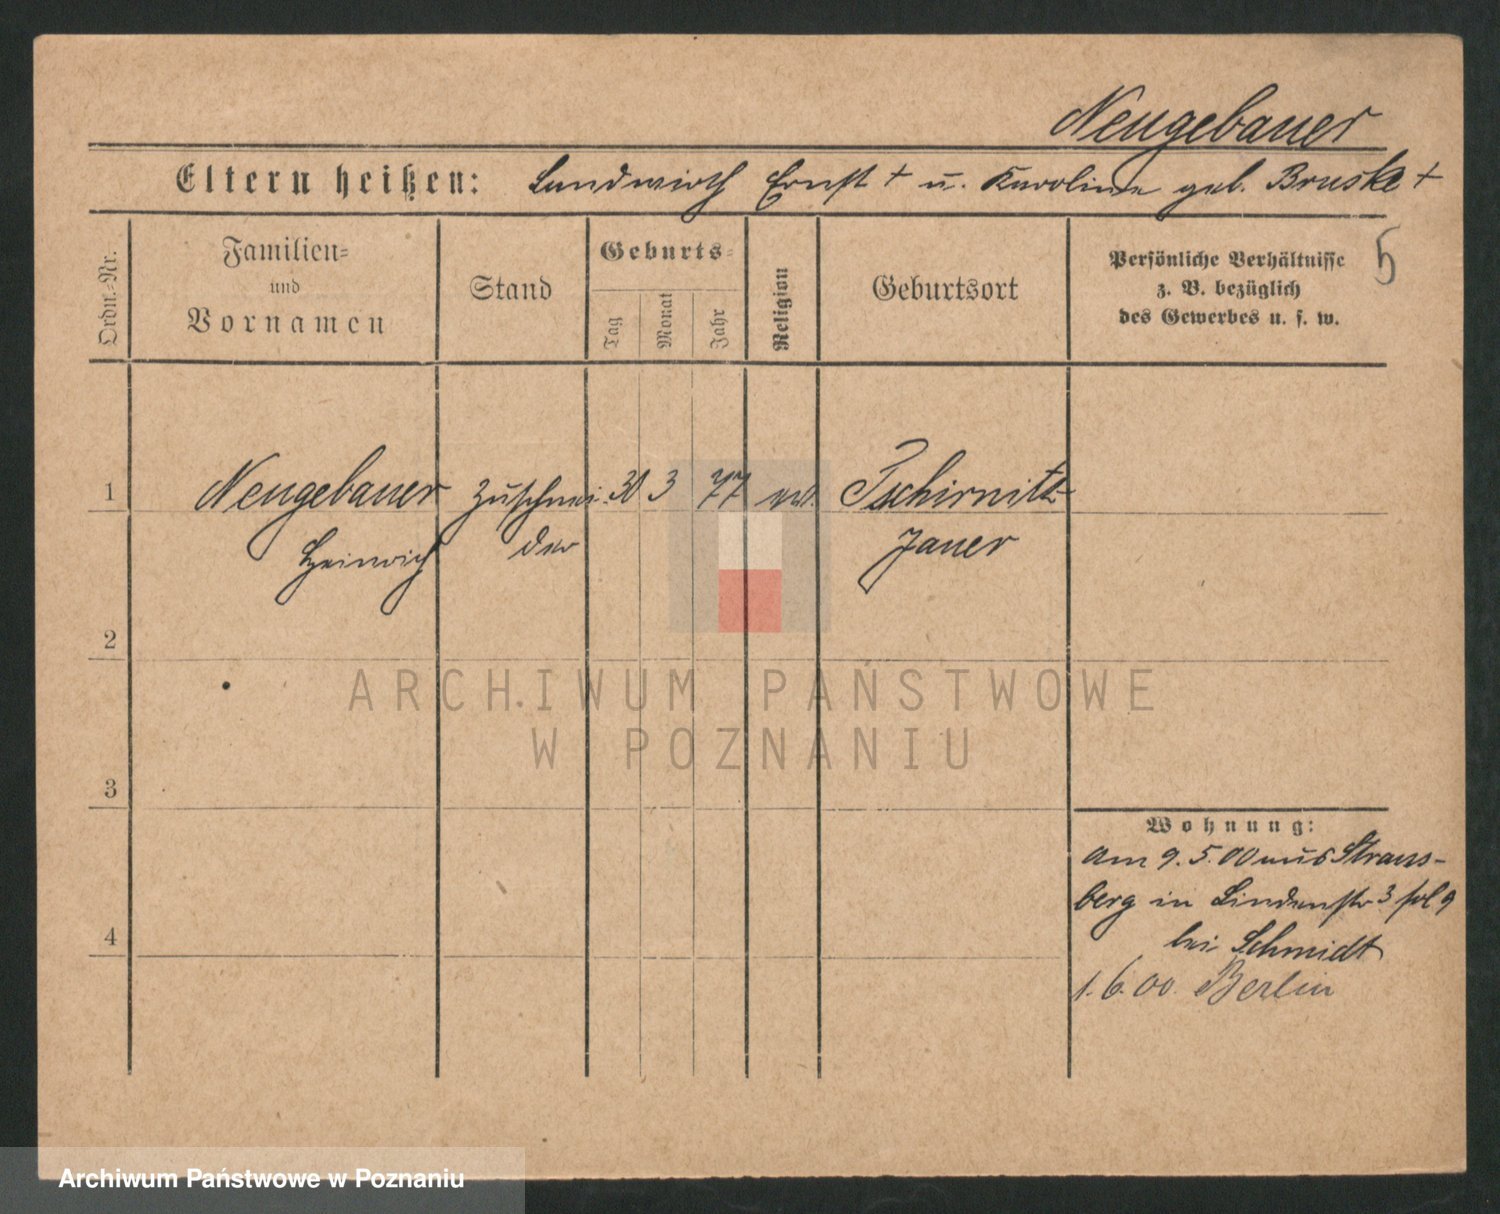 Neugebauer
Eltern heißen: Landwirth Ernst + u. Karoline geb. Bruske +
Ordn.-Nr.
Familien-
und
Vornamen
Stand
Geburts-
Tag
Monat
Jahr
Religion
Geburtsort
Persönliche Verhältnisse
z. B. bezüglich
des Gewerbes u. s. w.
5
1 Neugebauer Zuschnei- 30 3 77 ev. Tschirnitz
Heinrich der Jauer
2
3
4
Wohnung:
am 9.5.00 aus Straus-
berg in Lindenstr 3
bei Schmidt
1.6.00. Berlin
ARCHIWUM PAŃSTWOWE
W POZNANIU
Archiwum Państwowe w Poznaniu